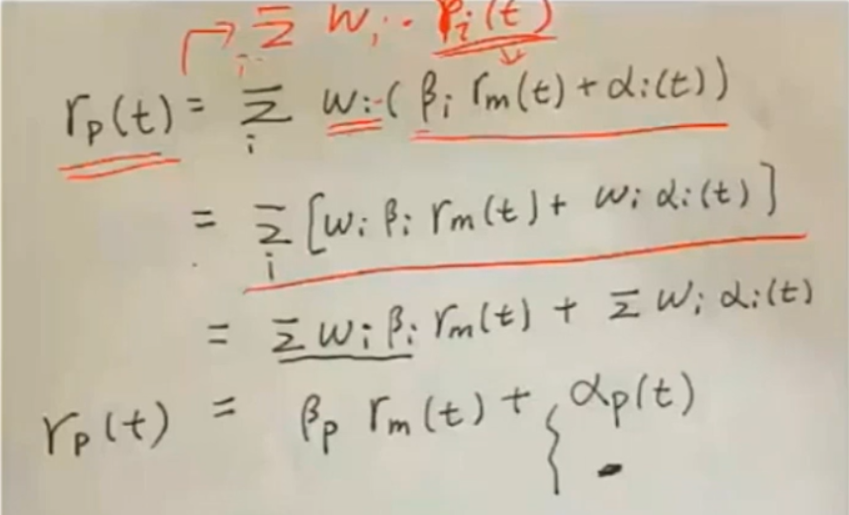 Σ_i w_i · r_i(t)
r_p(t) = Σ_i w_i · (β_i r_m(t) + α_i(t))
= Σ_i [w_i β_i r_m(t) + w_i α_i(t)]
= Σ w_i β_i r_m(t) + Σ w_i α_i(t)
r_p(t) = β_p r_m(t) + α_p(t)